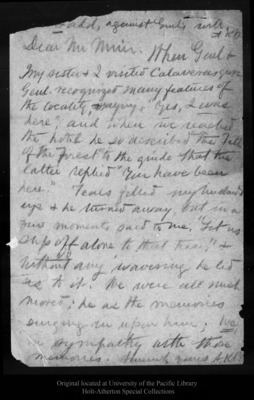 add, against Genl's
Dear Mr Muir. When Genl &
my sister & I visited Calaveras grove
Genl. recognized many features of
the locality, saying, "Yes, I was
here", and when we reached
the hotel he so described the Fall
of the Forest to the guide that the
latter replied "You have been
here." Tears filled my husband's
eyes & he turned away, but in a
few moments said to me, "Let us
slip off alone to that tree," &
without any wavering he led
us to it. We were all much
moved; he as the memories
surging in upon him; We
in sympathy with those
memories.
Original located at University of the Pacific Library
Holt-Atherton Special Collections